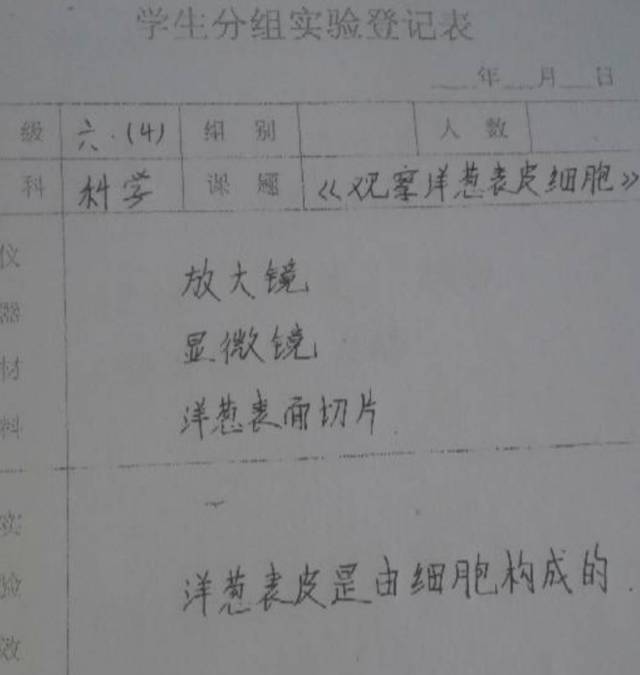 学生分组实验登记表
年 月 日
级 六.(4) 组别 人数
科 科学 课题 《观察洋葱表皮细胞》
仪
器
材
料
放大镜
显微镜
洋葱表面切片
实
验
效
洋葱表皮是由细胞构成的.